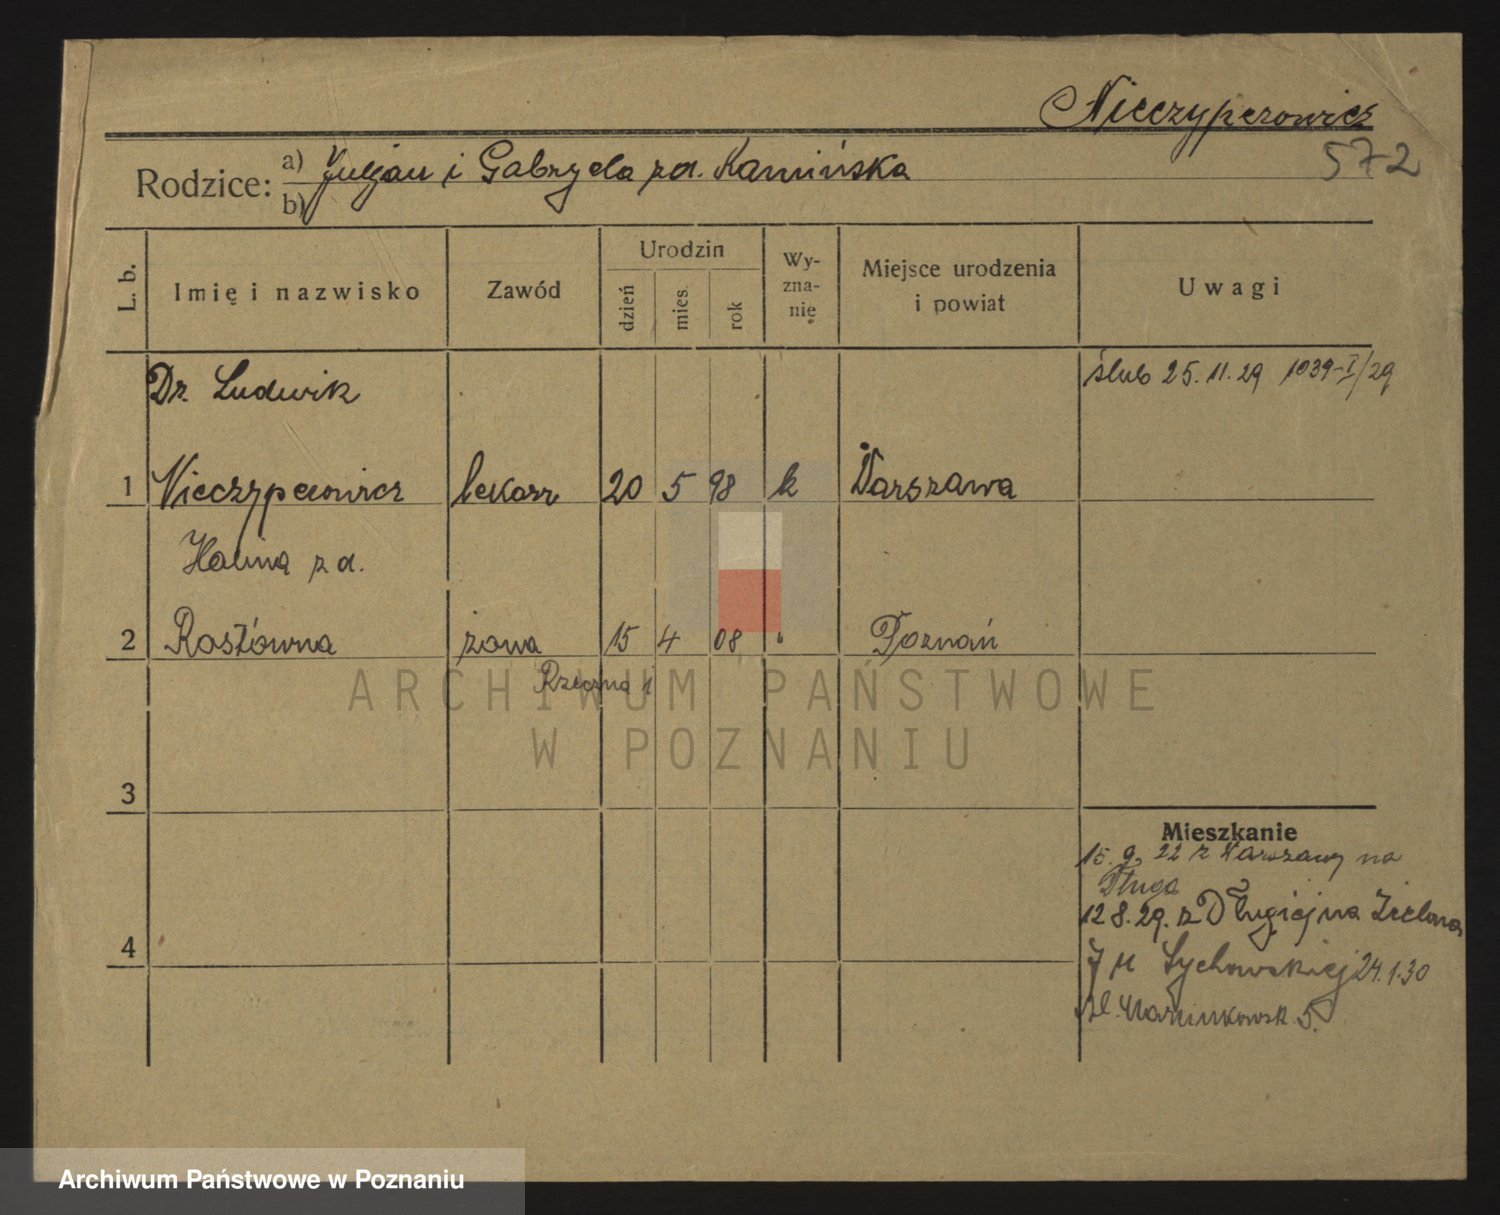 Nieczyperowicz
572
Rodzice: a) Juljan i Gabryela z d. Kamińska
b)
L. b. Imię i nazwisko Zawód Urodzin dzień mies. rok Wyznanie Miejsce urodzenia i powiat Uwagi
Dr. Ludwik ślub 25.11.29 1039-I/29
1 Nieczyperowicz lekarz 20 5 98 k Warszawa
Halina z d.
2 Rostówna żona 15 4 08 " Poznań
Rzeczna 1
ARCHIWUM PAŃSTWOWE
W POZNANIU
3
Mieszkanie
15. 9. 22 z Warszawy na
Długa
12 8. 29. z Długiej na Zielona
4
7 u Łychowskiej 24.1.30
Al. Marcinkowsk. 5.
Archiwum Państwowe w Poznaniu